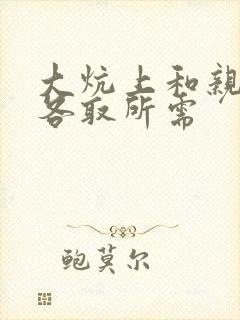 大炕上和親
各取所需
鲍莫尔